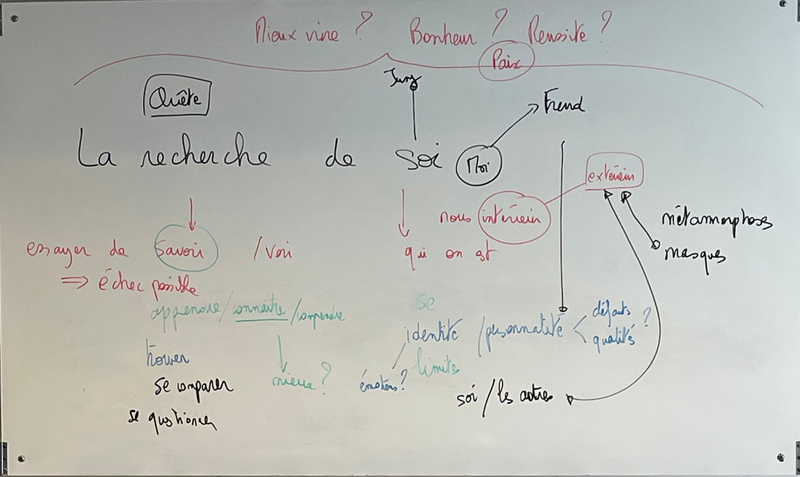 Mieux vivre ? Bonheur ? Réussite ?
Paix
Jung
Quête
Freud
La recherche de soi Moi
extérieur
nous intérieur
métamorphoses
masques
essayer de savoir / voir
qui on est
=> échec possible
apprendre / connaître / comprendre
se
identité / personnalité < défauts qualités ?
trouver
mieux ?
émotions ?
limites
se comparer
soi / les autres
se questionner